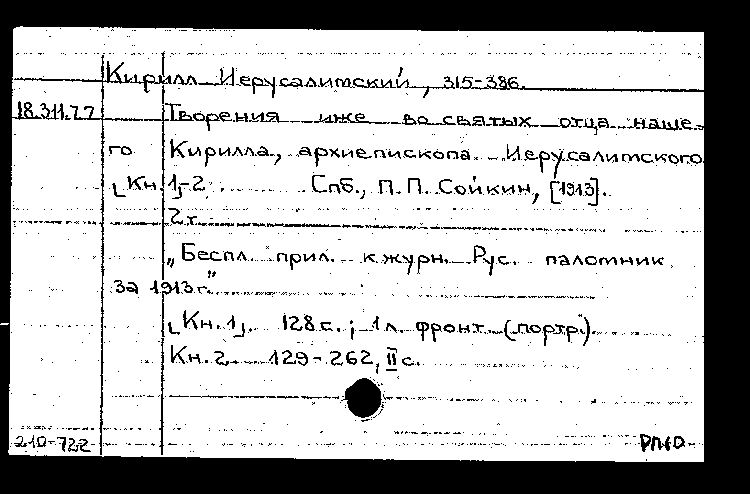 Кирилл Иерусалимский, 315-386.
18.311.7.7 Творения иже во святых отца наше-
го Кирилла, архиепископа Иерусалимского
[Кн. 1]-2 Спб., П. П. Сойкин, [1913].
2 т.
"Беспл. прил. к журн. Рус. паломник
за 1913 г."
[Кн. 1]. 128 с.; 1 л. фронт. (портр.).
Кн. 2. 129-262, II с.
210-722